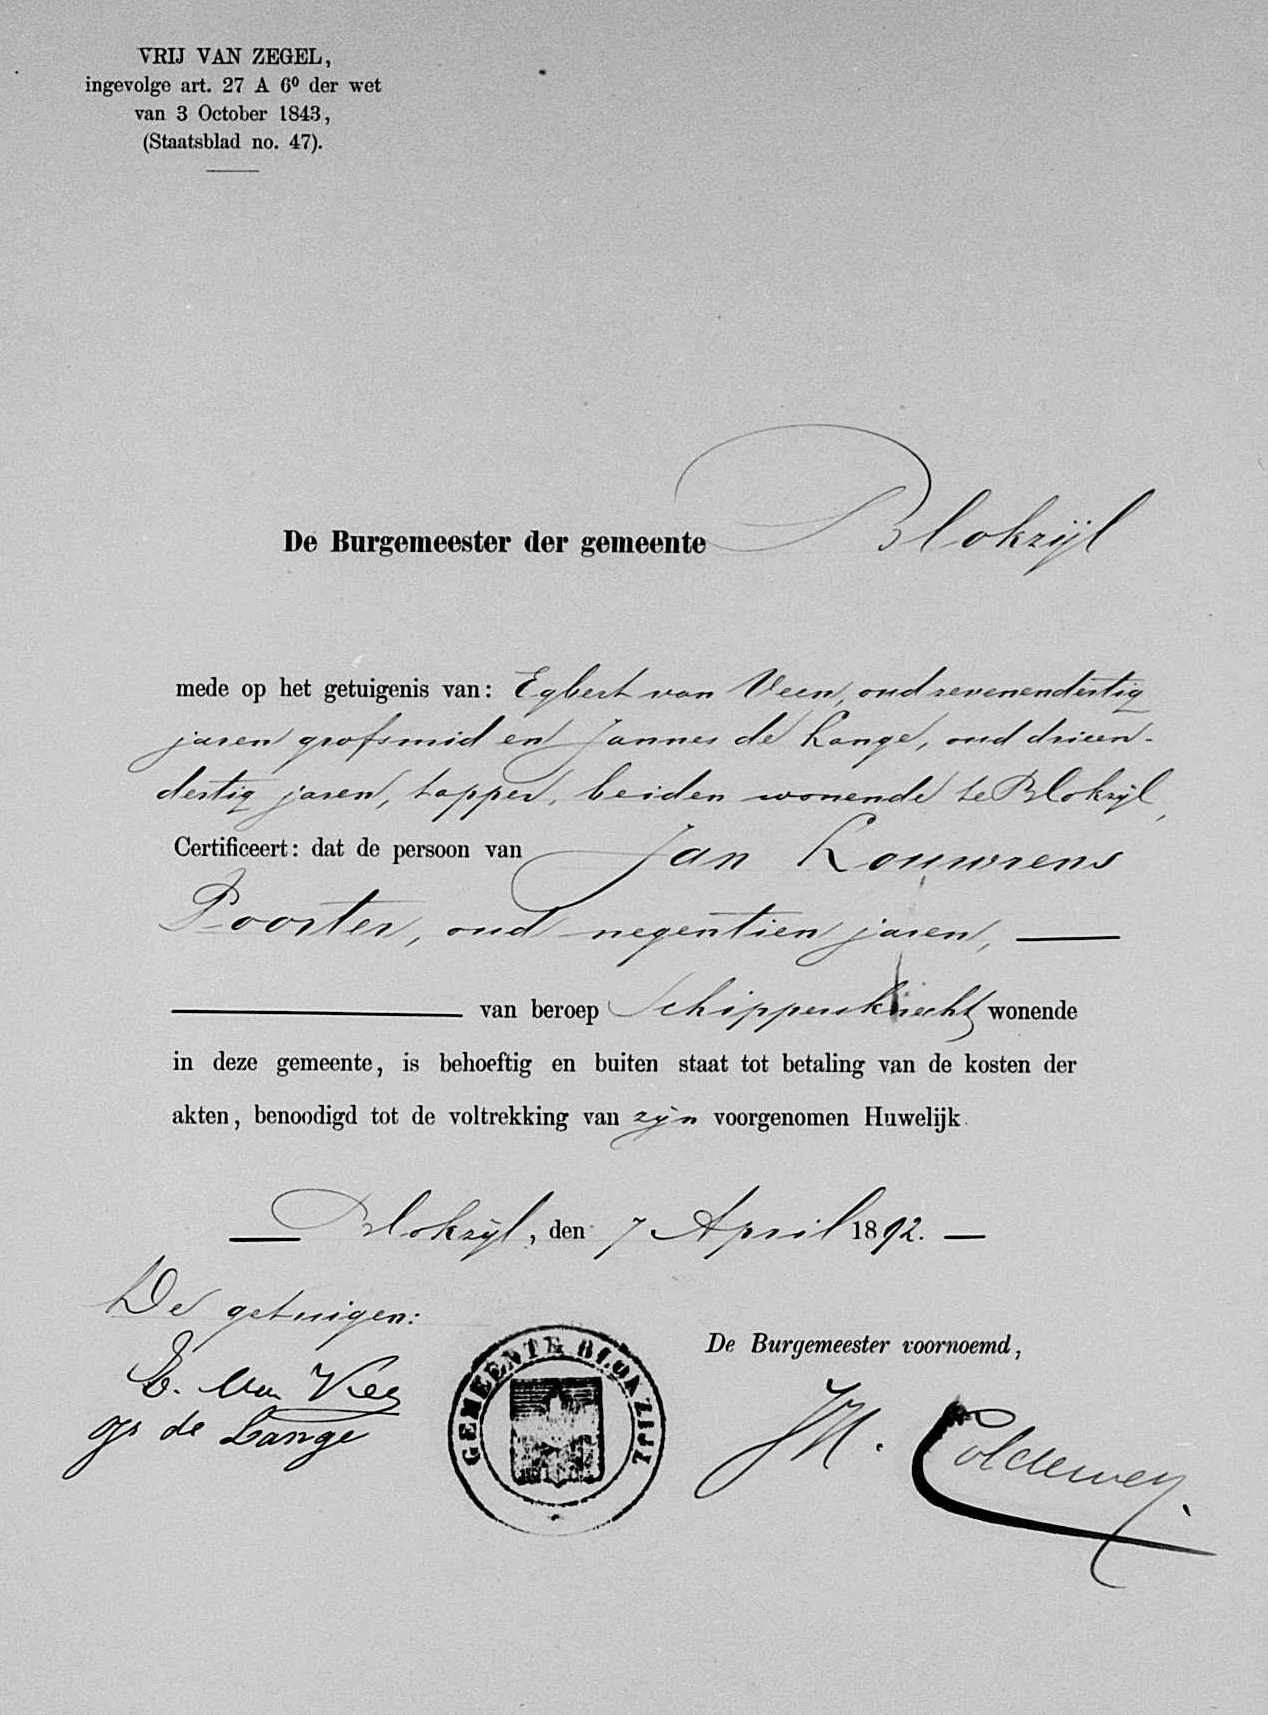 VRIJ VAN ZEGEL,
ingevolge art. 27 A 6⁰ der wet
van 3 October 1843,
(Staatsblad no. 47).
De Burgemeester der gemeente Blokzijl
mede op het getuigenis van: Egbert van Veen, oud zevenendertig
jaren grofsmid en Jannes de Lange, oud drieen-
dertig jaren, tapper, beiden wonende te Blokzijl,
Certificeert: dat de persoon van Jan Louwrens
Poorter, oud negentien jaren,
van beroep Schippersknecht wonende
in deze gemeente, is behoeftig en buiten staat tot betaling van de kosten der
akten, benoodigd tot de voltrekking van zijn voorgenomen Huwelijk.
Blokzijl, den 7 April 1892.
De getuigen:
De Burgemeester voornoemd,
E. van Veen
de Lange
GEMEENTE BLOKZIJL